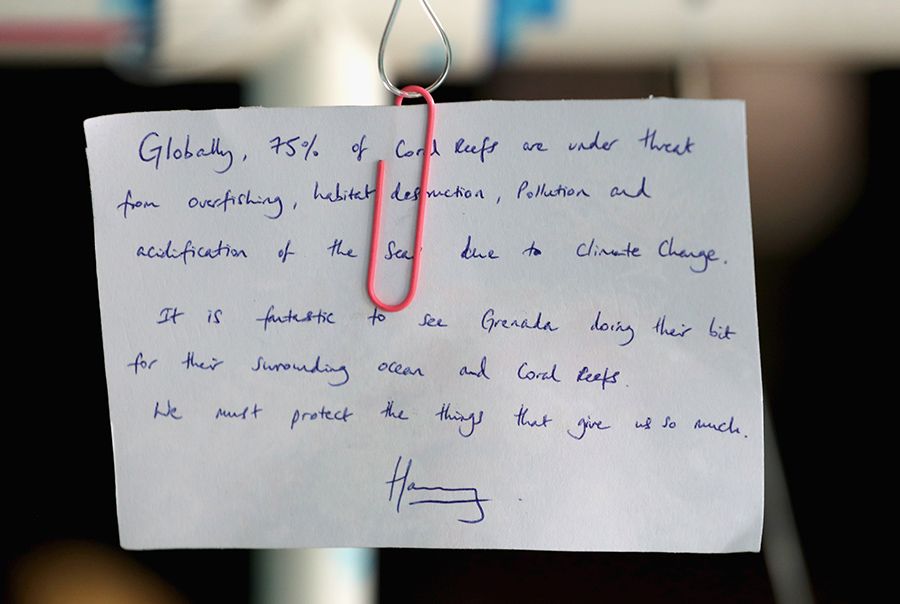 Globally, 75% of Coral Reefs are under threat
from overfishing, habitat destruction, Pollution and
acidification of the Sea due to Climate Change.
It is fantastic to see Grenada doing their bit
for their surrounding ocean and Coral Reefs.
We must protect the things that give us so much.
Harry